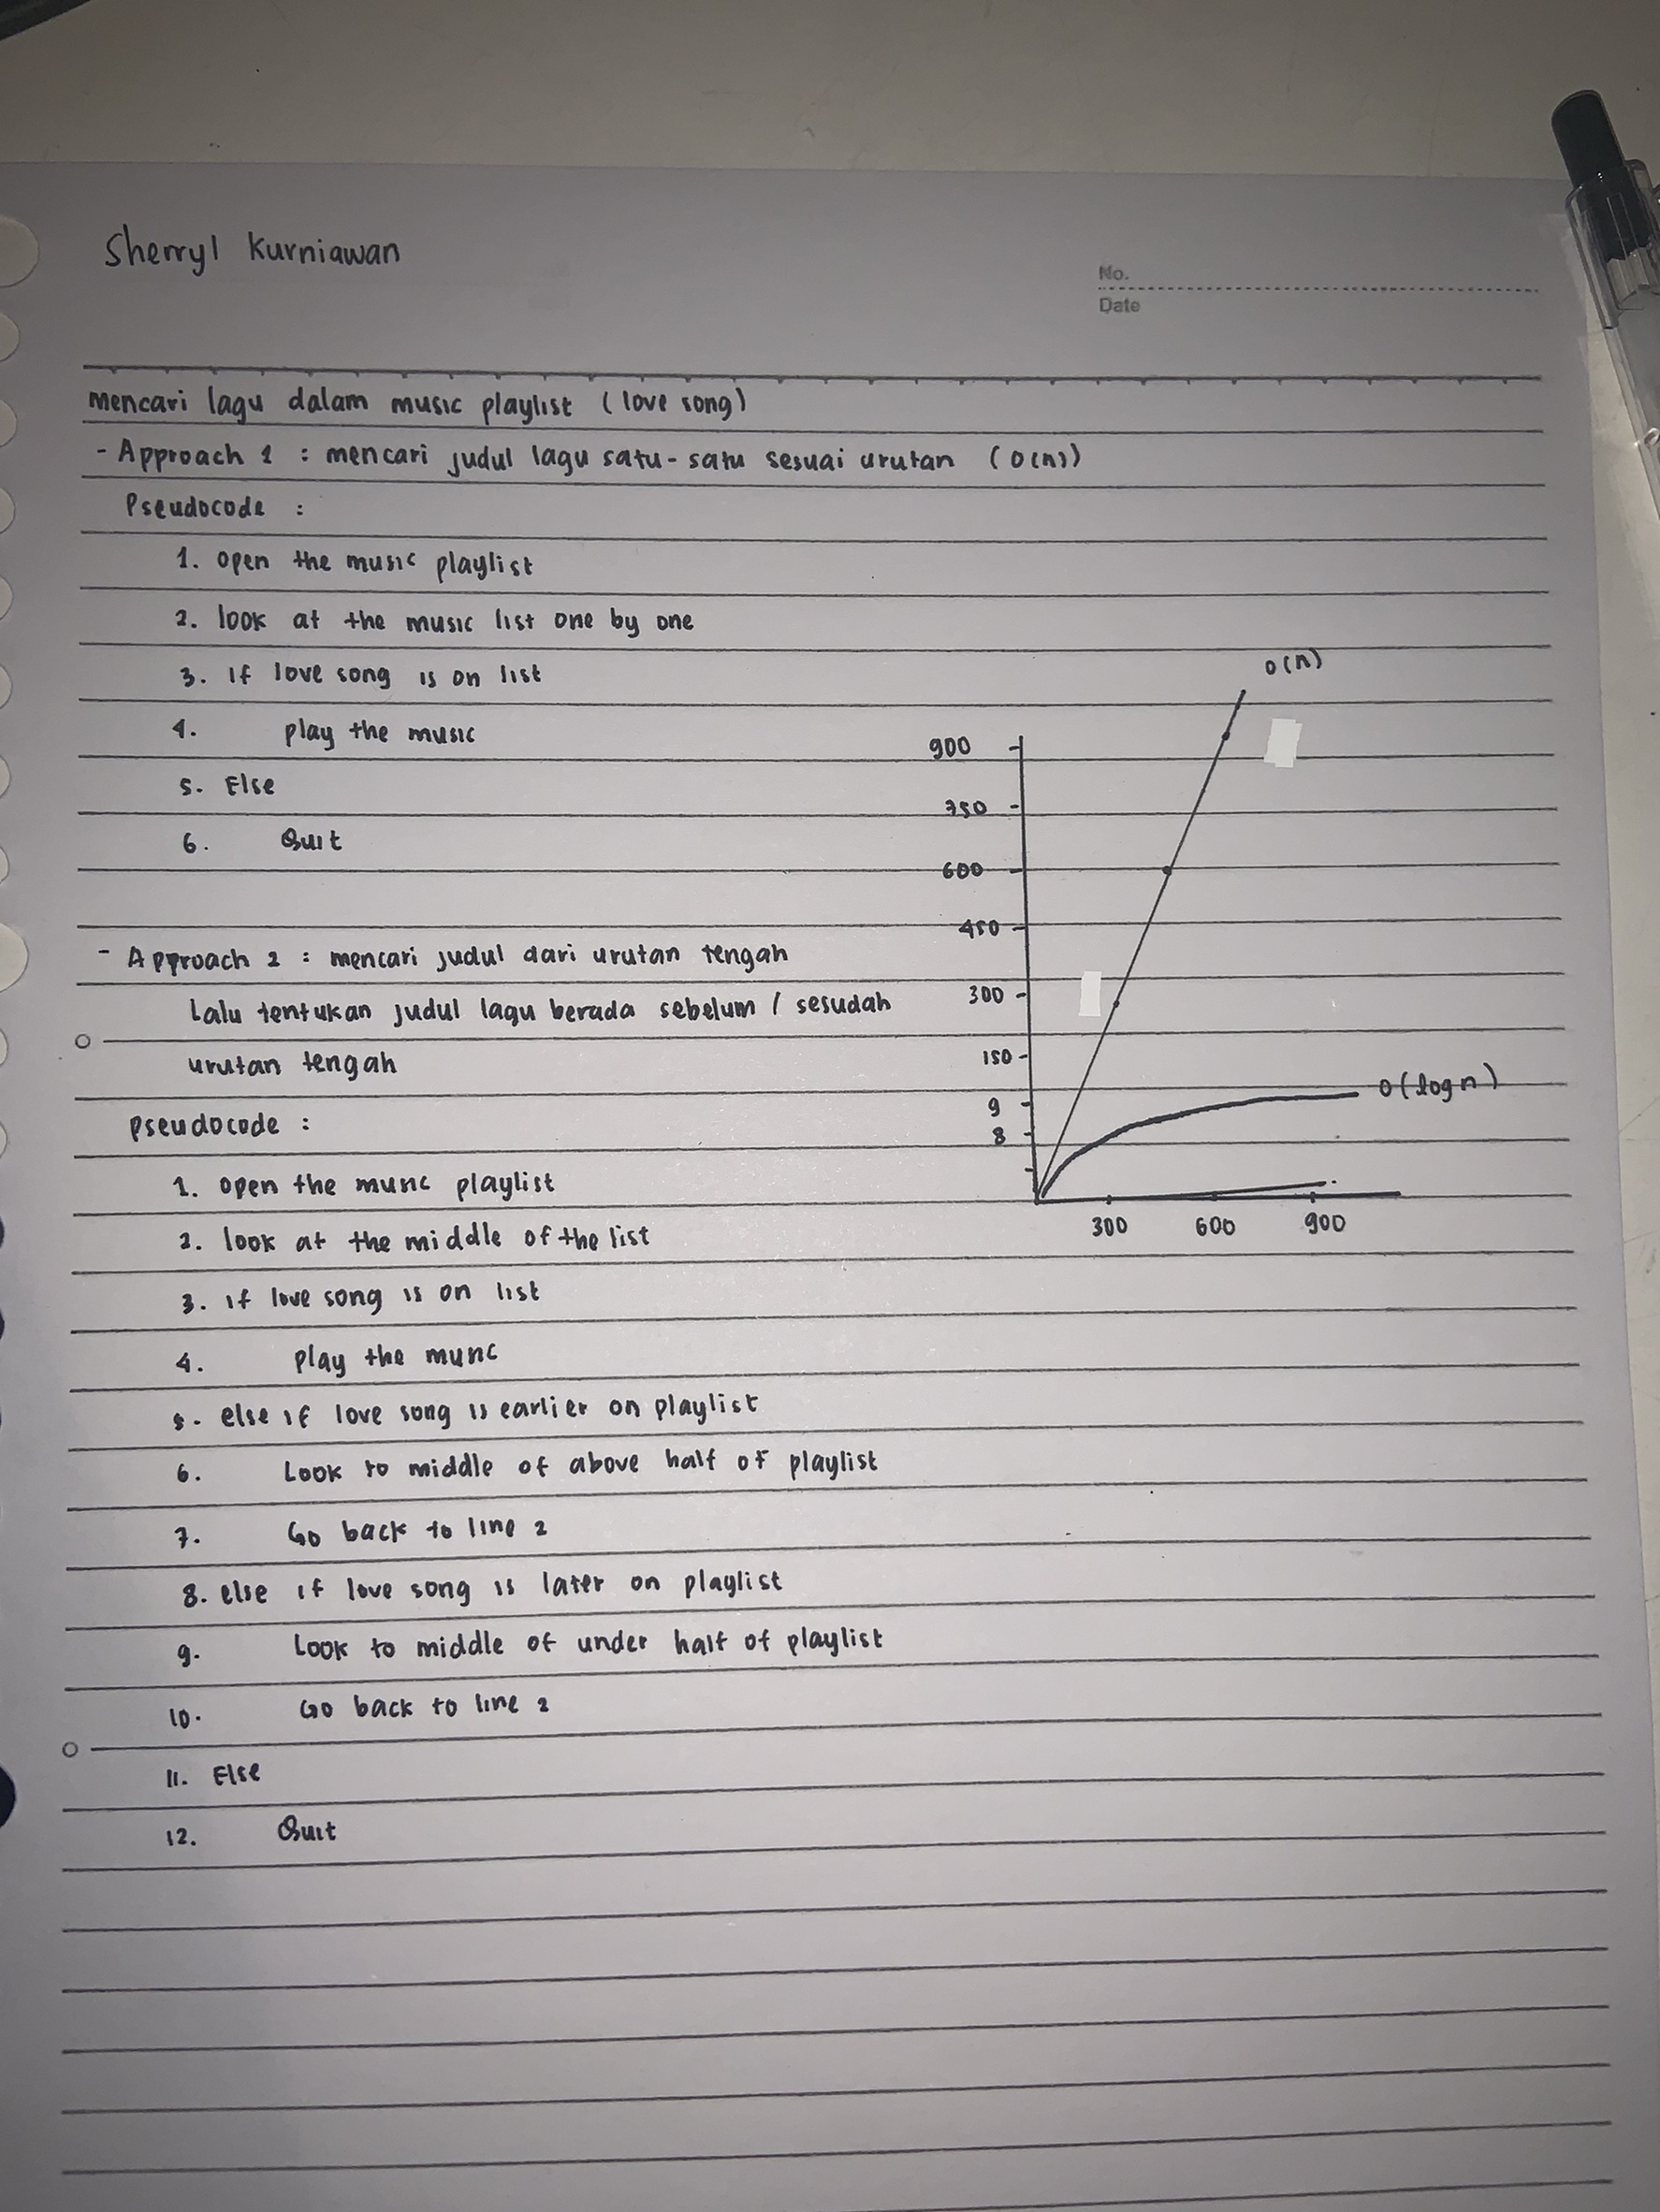 Sherryl Kurniawan
No.
Date
mencari lagu dalam music playlist (love song)
- Approach 1 : mencari judul lagu satu-satu sesuai urutan (O(n))
Pseudocode :
1. open the music playlist
2. look at the music list one by one
3. if love song is on list
4. play the music
5. Else
6. Quit
- Approach 2 : mencari judul dari urutan tengah
Lalu tentukan judul lagu berada sebelum / sesudah
urutan tengah
Pseudocode :
1. open the music playlist
2. look at the middle of the list
3. if love song is on list
4. play the music
5. else if love song is earlier on playlist
6. Look to middle of above half of playlist
7. Go back to line 2
8. else if love song is later on playlist
9. Look to middle of under half of playlist
10. Go back to line 2
11. Else
12. Quit
O(n)
900
750
600
450
300
150
9
8
O(log n)
300 600 900